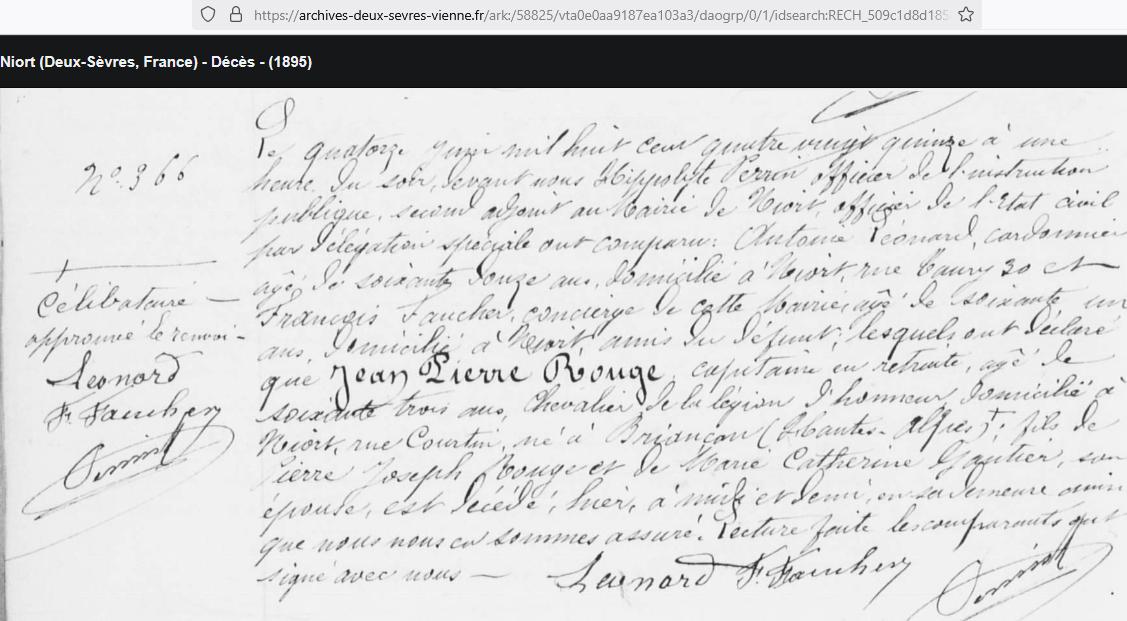 https://archives-deux-sevres-vienne.fr/ark:/58825/vta0e0aa9187ea103a3/daogrp/0/1/idsearch:RECH_509c1d8d185
Niort (Deux-Sèvres, France) - Décès - (1895)
N° 366
célibataire —
approuvé le renvoi -
Leonord
F. Faucher
Perrin
Le quatorze juin mil huit cent quatre vingt quinze à une
heure du soir, devant nous Hippolyte Perrin officier de l'instruction
publique, second adjoint au Maire de Niort, officier de l'Etat civil
par délégation spéciale ont comparu: Antoine Léonard, cordonnier
âgé de soixante douze ans, domicilié à Niort, rue 30 et
François Faucher, concierge de cette Mairie, âgé de soixante un
ans, domicilié à Niort, amis du défunt; lesquels ont déclaré
que Jean Pierre Rouge, capitaine en retraite, âgé de
soixante trois ans, Chevalier de la légion d'honneur, domicilié à
Niort, rue Courtin, né à Briançon (Hautes-Alpes) †; fils de
Pierre Joseph Rouge et de Marie Catherine Gautier, son
épouse, est décédé, hier, à midi et demi, en sa demeure ainsi
que nous nous en sommes assuré. Lecture faite les comparants ont
signé avec nous —
Leonord F. Faucher Perrin